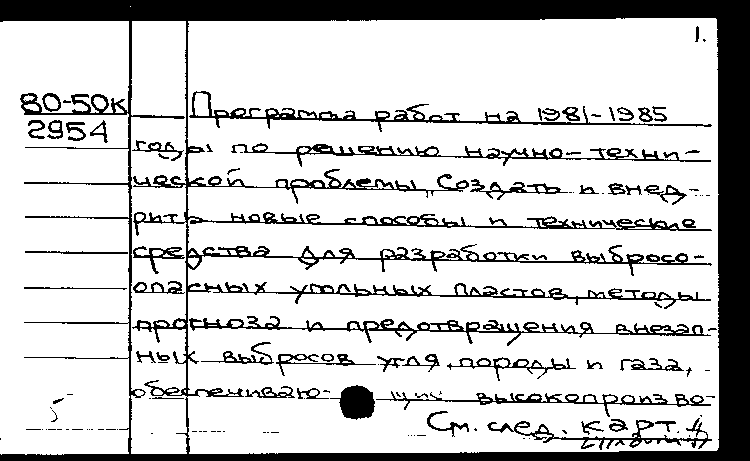 1.
80-50к
2954
Программа работ на 1981-1985
годы по решению научно-техни-
ческой проблемы „Создать и внед-
рить новые способы и технические
средства для разработки выбросо-
опасных угольных пластов, методы
прогноза и предотвращения внезап-
ных выбросов угля, породы и газа,
обеспечиваю- щих высокопроизво-
См. след. карт.